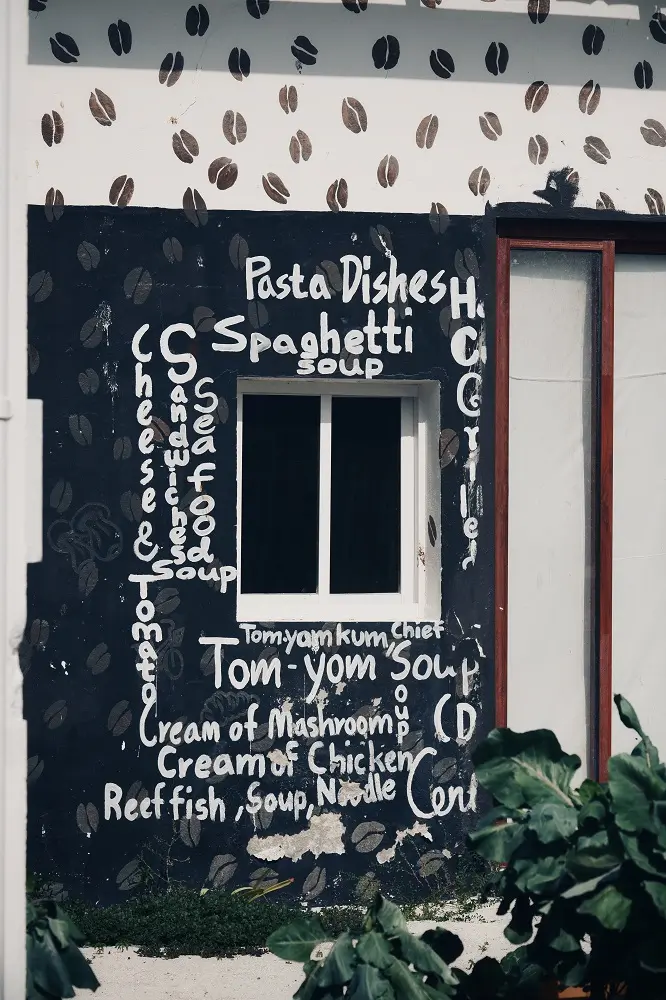 Pasta Dishes
Spaghetti
soup
Cheese & Tomato
Sandwiches
Seafood
Soup
Tom-yam kum, Chief
Tom-yom Soup
Soup
Cream of Mashroom
Cream of Chicken
Reef fish, Soup, Noodle